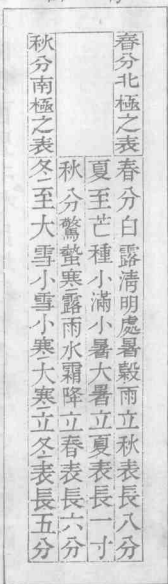 春分北極之表春分白露清明處暑穀雨立秋表長八分
夏至芒種小滿小暑大暑立夏表長一寸
秋分驚蟄寒露雨水霜降立春表長六分
秋分南極之表冬至大雪小雪小寒大寒立冬表長五分